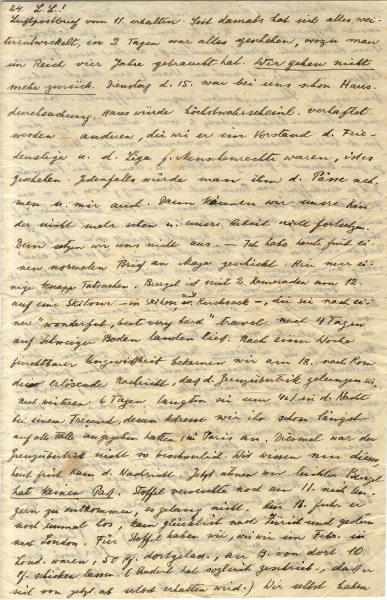 24. L. L.!
Luftpostbrief vom 11. erhalten. Seit damals hat sich alles wei-
terentwickelt, in 2 Tagen war alles geschehen, wozu man
im Reich vier Jahre gebraucht hat. Wir gehen nicht
mehr zurück. Dienstag d. 15. war bei uns schon Haus-
durchsuchung. Hans würde höchstwahrscheinl. verhaftet
werden anderen, die wie er im Vorstand d. Frie-
densliga u. d. Liga f. Menschenrechte waren, ist es
geschehen. Jedenfalls würde man ihm d. Pässe neh-
men u. mir auch. Dann können wir unsere Kin-
der nicht mehr sehen u. unsere Arbeit nicht fortsetzen.
Dem setzen wir uns nicht aus. — Ich habe heute früh ei-
nen normalen Brief an Maja geschickt. Hier nur ei-
nige knappe Tatsachen. Bengel ist mit 2 Kameraden am 12.
auf eine Skitour — in Skihose, mit Rucksack —, die sie nach ei-
ner "wonderful, but very hard" travel nach 4 Tagen
auf Schweizer Boden landen liess. Nach einer Woche
furchtbarer Ungewissheit bekamen wir am 18. nach Rom
die erlösende Nachricht, das d. Grenzübertritt gelungen sei,
nach weiteren 6 Tagen langten sie um 4 in d. Nacht
bei einem Freund, dessen Adresse wir ihr schon längst
auf alle Fälle angegeben hatten, in Paris an. Diesmal war der
Grenzübertritt nicht so beschwerlich. Wir wissen nur dies,
heut früh kam d. Nachricht. Jetzt atmen wir leichter. Bengel
hat keinen Pass. Stoffel versuchte noch am 11. nach Un-
garn zu entkommen, es gelang nicht. Am 16. fuhr er
noch einmal los, kam glücklich nach Zürich und gestern
nach London. Für Stoffel haben wir, wie wir im Febr. in
Lond. waren, dortgelass., an B. von dort 10
schicken lassen. (Anderl hat sogleich geschrieb., darf er
sich von jetzt ab selbst erhalten wird.) Wir selbst haben